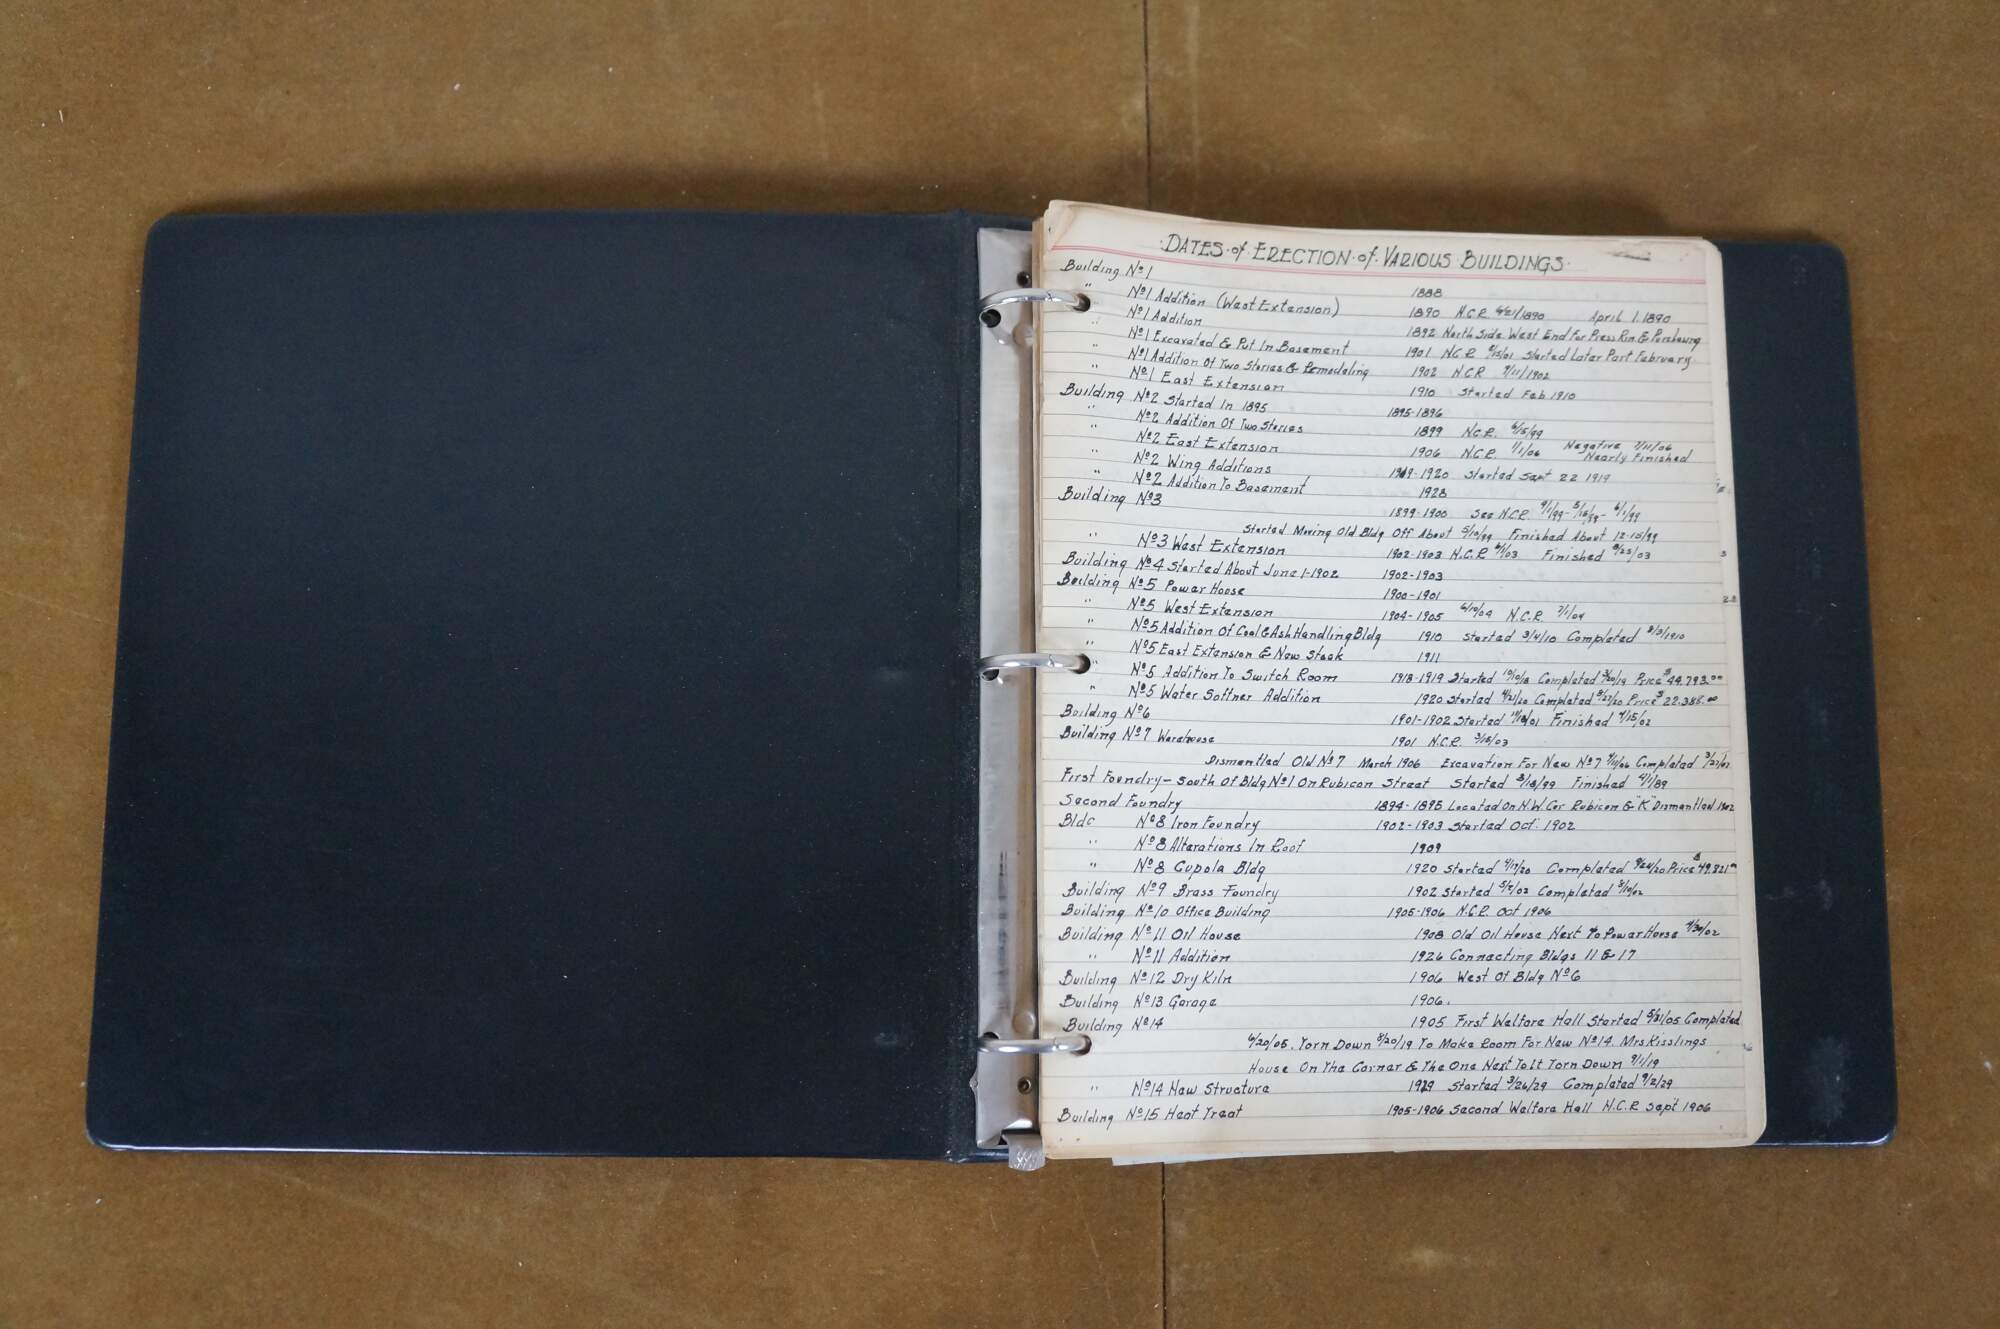 DATES of ERECTION of VARIOUS BUILDINGS
Building Nº1 1888
" Nº1 Addition (West Extension) 1890 N.C.R. 6/21/1890 April 1.1890
" Nº1 Addition 1892 North Side West End For Press Rm. & Purchasing
" Nº1 Excavated & Put In Basement 1901 N.C.R. Started Later Part February
" Nº1 Addition Of Two Stories & Remodeling 1902 N.C.R 1902
" Nº1 East Extension 1910 Started Feb 1910
Building Nº2 Started In 1895 1895-1896
" Nº2 Addition Of Two Stories 1899 N.C.R. 6/15/99
" Nº2 East Extension 1906 N.C.R. 1/1/06 Negative 7/11/06 Nearly Finished
" Nº2 Wing Additions 1919-1920 Started Sept 22 1919
" Nº2 Addition To Basement 1928
Building Nº3 1899-1900 See N.C.R. 4/1/99 - 5/15/99 - 6/1/99
Started Moving Old Bldg Off About 5/10/99 Finished About 12-15/99
" Nº3 West Extension 1902-1903 N.C.R Finished 8/25/03
Building Nº4 Started About June 1-1902 1902-1903
Building Nº5 Power House 1900-1901
" Nº5 West Extension 1904-1905 6/10/04 N.C.R. 7/1/04
" Nº5 Addition Of Coal & Ash Handling Bldg 1910 Started 3/4/10 Completed 8/3/1910
" Nº5 East Extension & New Stack 1911
" Nº5 Addition To Switch Room 1918-1919 Started 10/10/18 Completed 3/20/19 Price $49.793.00
" Nº5 Water Softner Addition 1920 Started 4/21/20 Completed 8/27/20 Price $22.385.00
Building Nº6 1901-1902 Started Finished 4/15/02
Building Nº7 Warehouse 1901 N.C.R. 3/15/03
Dismantled Old Nº7 March 1906 Excavation For New Nº7 4/11/06 Completed
First Foundry - South Of Bldg Nº1 On Rubicon Street Started Finished 4/1/89
Second Foundry 1894-1895 Located On N.W. Cor Rubicon & "K" Dismantled 1902
Bldg Nº8 Iron Foundry 1902-1903 Started Oct. 1902
" Nº8 Alterations In Roof 1909
" Nº8 Cupola Bldg 1920 Started 4/17/20 Completed 9/24/20 Price $49.821
Building Nº9 Brass Foundry 1902 Started Completed
Building Nº10 Office Building 1905-1906 N.C.R. Oct 1906
Building Nº11 Oil House 1908 Old Oil House Next To Power House 4/30/02
" Nº11 Addition 1926 Connecting Bldgs 11 & 17
Building Nº12 Dry Kiln 1906 West Of Bldg Nº6
Building Nº13 Garage 1906.
Building Nº14 1905 First Welfare Hall Started 5/31/05 Completed
6/20/05. Torn Down 8/20/19 To Make Room For New Nº14. Mrs Kisslings
House On The Corner & The One Next To It Torn Down 9/1/19
" Nº14 New Structure 1929 Started 3/26/29 Completed 9/2/29
Building Nº15 Heat Treat 1905-1906 Second Welfare Hall N.C.R Sept 1906